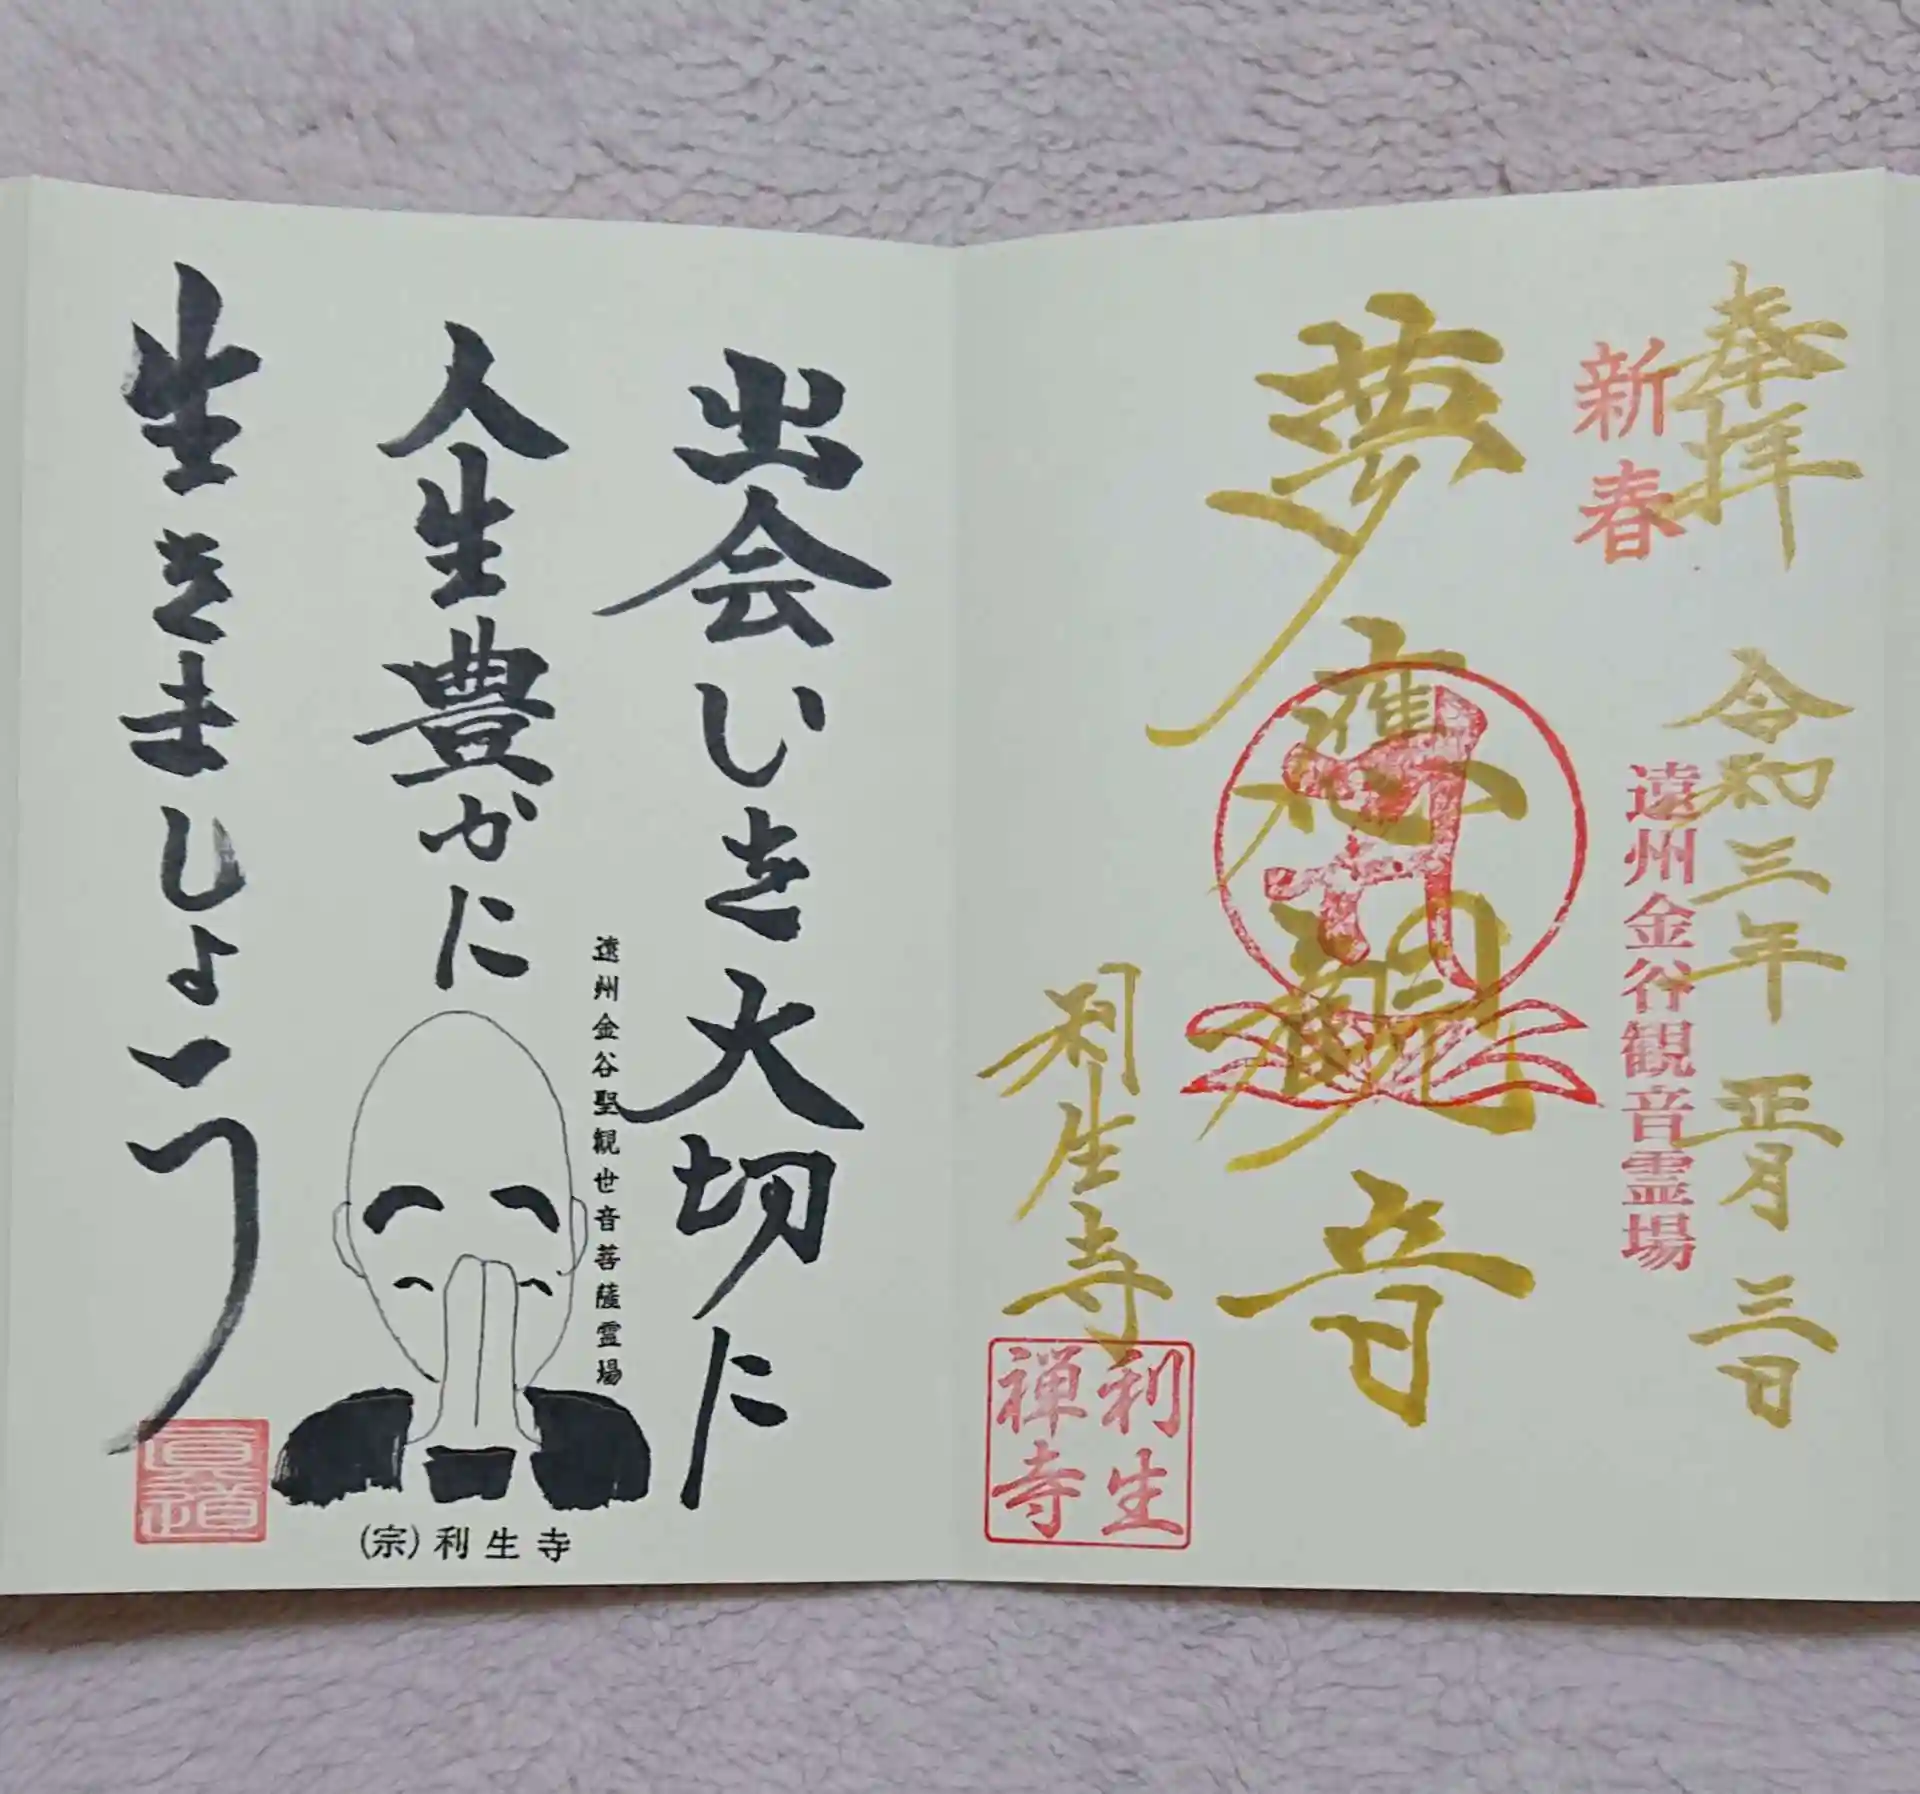 奉拝
令和三年 正月 三日
新春
遠州金谷観音霊場
夢應観音
利生寺
利生
禅寺
出会いを大切に
人生豊かに
生きましょう
遠州金谷聖観世音菩薩霊場
(宗)利生寺